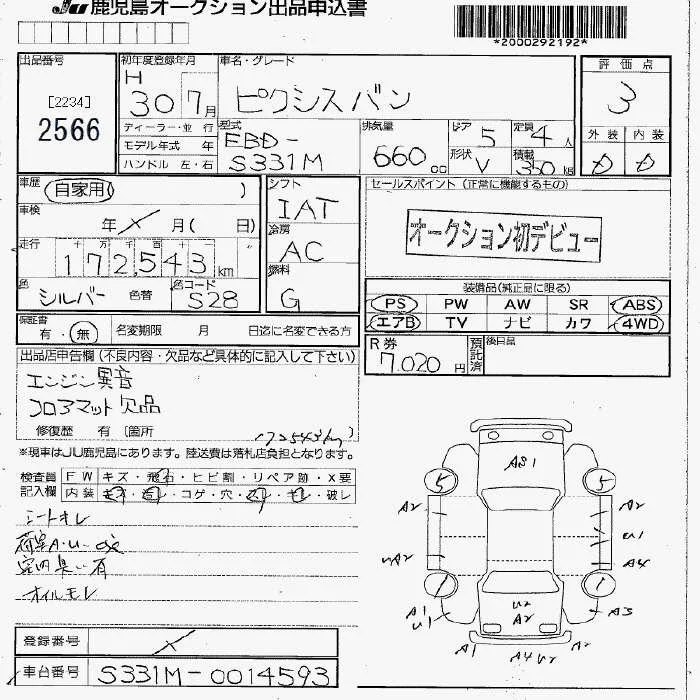 JU 鹿児島オークション出品申込書
*2000292192*
出品番号
[2234]
2566
初年度登録年月
H 30 7月
車名・グレード
ピクシスバン
評価点
3
外装 内装
ディーラー・並行
モデル年式 年
ハンドル 左・右
型式
EBD-
S331M
排気量
660 cc
ドア 5
定員 4人
形状 V
積載 350 kg
車歴 自家用( )
車検
年 月( 日)
走行
十 万 千 百 十 一
172,543 km
色 シルバー 色替
色コード S28
シフト
IAT
冷房
AC
燃料
G
セールスポイント (正常に機能するもの)
オークション初デビュー
装備品(純正品に限る)
PS PW AW SR ABS
エアB TV ナビ カワ 4WD
保証書
有・無 名変期限 月 日迄に名変できる方
R券
7.020円
預託済
後日品
出品店申告欄 (不良内容・欠品など具体的に記入して下さい)
エンジン異音
フロアマット欠品
修復歴 有 〔箇所
(172543km)
*現車はJU鹿児島にあります。陸送費は落札店負担となります。
検査員
記入欄
FW キズ・飛石・ヒビ割・リペア跡・X要
内装 ・コゲ・穴・ ・ ・破レ
シートキレ
荷室A・U-
室内臭い有
オイルモレ
AS1
5 5
A2 A2
U1
UA2 A4
1 1
A1 U1 U2 A2 A3
A1 A4 U2 A2
登録番号
車台番号 S331M-0014593